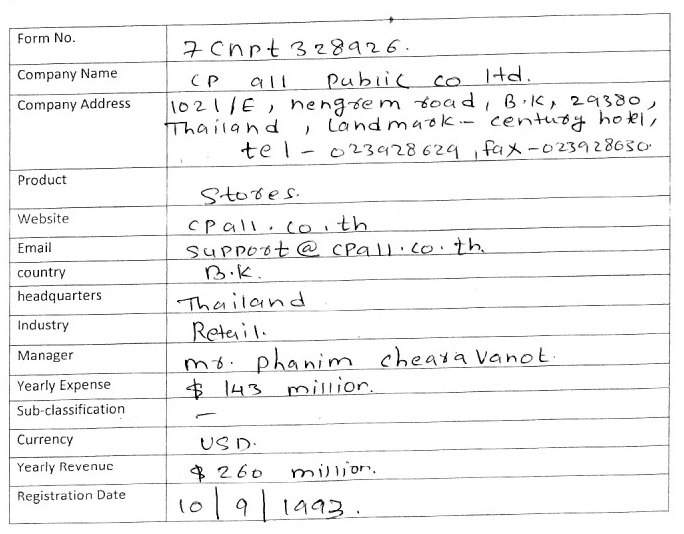 Form No. 7 Cnpt 328926.
Company Name CP all Public co ltd.
Company Address 1021/E, nengrem road, B.K, 29380,
Thailand, Landmark - century hotel,
tel - 023928629, fax - 023928630.
Product Stores.
Website cpall.co.th
Email support@cpall.co.th.
country B.K.
headquarters Thailand
Industry Retail.
Manager mr. phanim chearavanot.
Yearly Expense $ 143 million.
Sub-classification –
Currency USD.
Yearly Revenue $ 260 million.
Registration Date 10/9/1993.